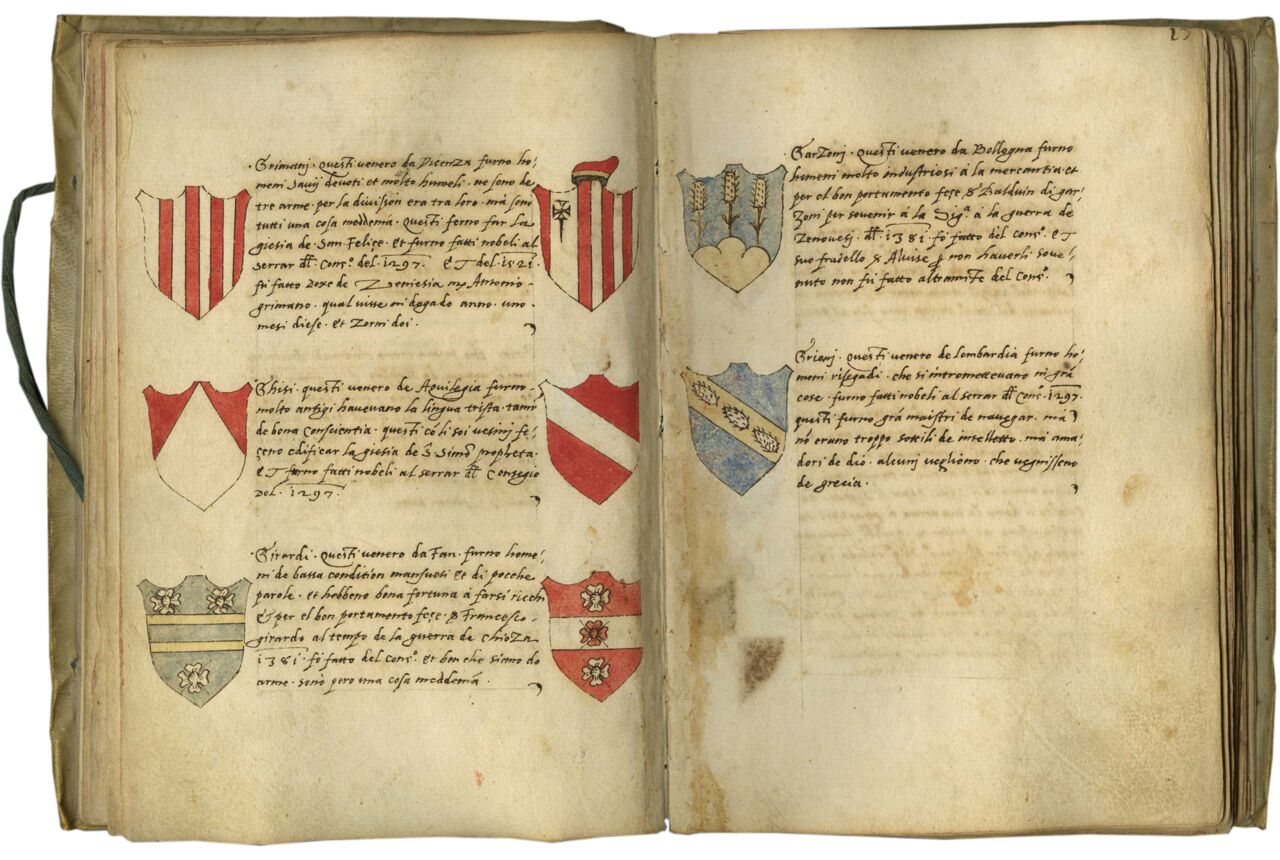 ·Grimanj· questi venero da Vicenza furno ho:
meni savij devoti et molto humeli· ne sono de
tre arme· per la division era tra loro· ma sono
tutti una cosa meddema· questi ferno far la
giesia de San Felice· et furno fatti nobeli al
serrar dl̃l Cons.º del ·1297· ET del ·1521·
fù fatto Doxe de Venetia Antonio
grimano· qual visse in dogado anno· uno·
mesi diese· et zorni doi·
Ghisi· questi venero de Aquilegia furno
molto antiqi havevano la lingua trista· tamẽ
de bona Conscientia· questi cõ li soi vesinj fe:
ceno edificar la giesia de S. Simõ propheta·
ET furno fatti nobeli al serrar dl̃l Consegio
del ·1297·
·Girardi· questi venero da Fan· furno home:
ni de bassa condition mansueti et di pocche
parole· et hebbeno bona fortuna à farsi ricchi
ET per el bon portamento fese· S Francesco
girardo al tempo de la guerra de chioza
1381· fò fatto del Cons.º et ben che siano do
arme· sono pero una cosa meddemã·
25
·Garzonj· questi venero da Bollegna furno
homeni molto industriosi à la mercantia et
per el bon portamento fese S Balduin di gar:
zoni per sovenir à la Sig.ª à la guerra de
Zenovesj· dl̃l ·1381· fò fatto del Cons.º ET
suo fradello S Alvise ꝑ non haverli sove:
nuto non fù fatto altramẽte del Cons.º
Grionj· questi venero de Lombardia furno ho:
meni risegadi· che si intromettevano in grã
cose· furno fatti nobeli al serar dl̃l Cons.º ·1297·
questi furno grã maistri de navegar· mà
nõ erano troppo sottili de intelletto· mà ama:
dori de dio· alcunj vogliono· che vegnisseno
de grecia·